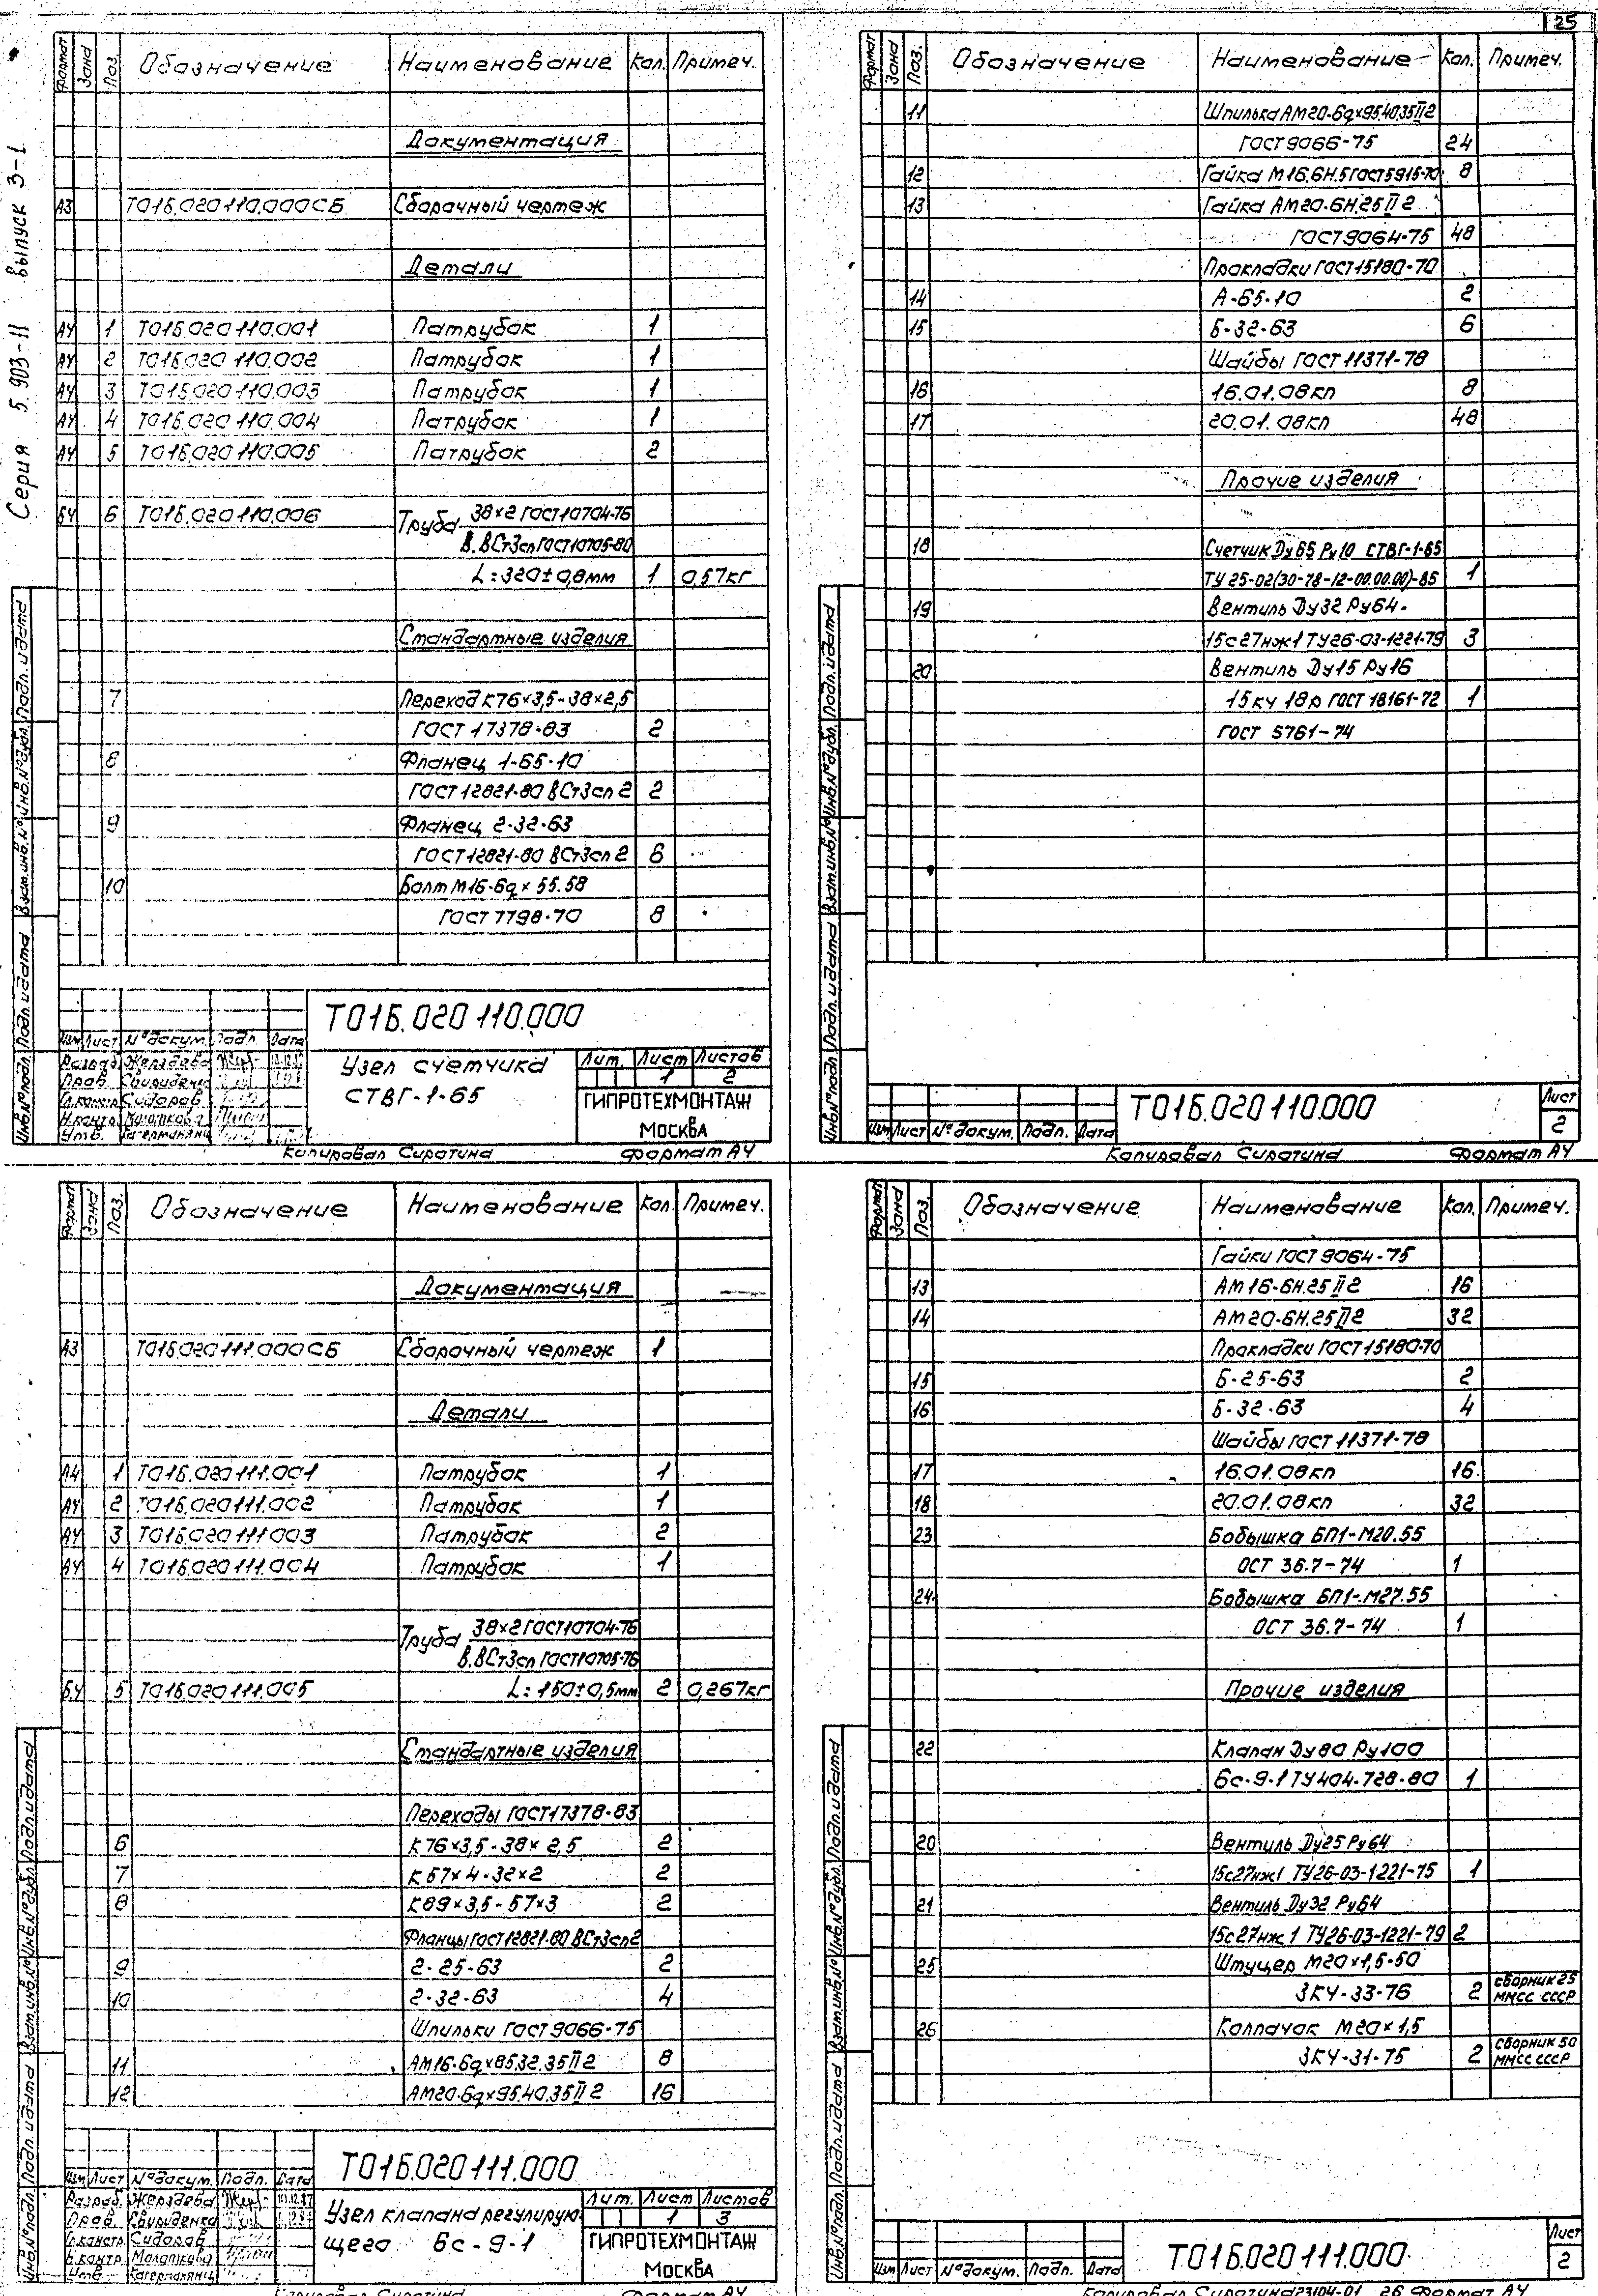 25
Серия 5.903-11 выпуск 3-1
Формат Зона Поз. Обозначение Наименование Кол. Примеч.
Документация
А3 Т01Б.020110.000СБ Сборочный чертеж
Детали
А4 1 Т01Б.020110.001 Патрубок 1
А4 2 Т01Б.020110.002 Патрубок 1
А4 3 Т01Б.020110.003 Патрубок 1
А4 4 Т01Б.020110.004 Патрубок 1
А4 5 Т01Б.020110.005 Патрубок 2
БЧ 6 Т01Б.020110.006 Труба 38×2 ГОСТ10704-76
В.ВСт3сп ГОСТ10705-80
L=320±0,8мм 1 0,57кг
Стандартные изделия
7 Переход К76×3,5-38×2,5
ГОСТ 17378-83 2
8 Фланец 1-65-10
ГОСТ12821-80 ВСт3сп2 2
9 Фланец 2-32-63
ГОСТ12821-80 ВСт3сп2 6
10 Болт М16-6g×55.58
ГОСТ 7798-70 8
Т01Б.020110.000
Изм Лист № докум. Подп. Дата
Разраб. Жерздева
Пров. Свириденко
Гл.констр. Сидоров
Н.контр. Молоткова
Утв.
Узел счетчика
СТВГ-1-65
Лит. Лист Листов
1 2
ГИПРОТЕХМОНТАЖ
МОСКВА
Копировал Сиротина Формат А4
Инв.№подл. Подп. и дата Взам.инв.№ Инв.№дубл. Подп. и дата
Формат Зона Поз. Обозначение Наименование Кол. Примеч.
11 Шпилька АМ20-6g×95.40.35 II 2
ГОСТ9066-75 24
12 Гайка М16.6Н.5 ГОСТ5915-70 8
13 Гайка АМ20-6Н.25 II 2
ГОСТ9064-75 48
Прокладки ГОСТ15180-70
14 А-65-10 2
15 Б-32-63 6
Шайбы ГОСТ 11371-78
16 16.01.08кп 8
17 20.01.08кп 48
Прочие изделия
18 Счетчик Ду65 Ру10 СТВГ-1-65
ТУ 25-02(30-78-12-00.00.00)-85 1
19 Вентиль Ду32 Ру64
15с27нж1 ТУ26-03-1221-79 3
20 Вентиль Ду15 Ру16
15кч 18р ГОСТ 18161-72 1
ГОСТ 5761-74
Т01Б.020110.000
Изм Лист № докум. Подп. Дата
Лист
2
Копировал Сиротина Формат А4
Инв.№подл. Подп. и дата Взам.инв.№ Инв.№дубл. Подп. и дата
Формат Зона Поз. Обозначение Наименование Кол. Примеч.
Документация
А3 Т01Б.020111.000СБ Сборочный чертеж 1
Детали
А4 1 Т01Б.020111.001 Патрубок 1
А4 2 Т01Б.020111.002 Патрубок 1
А4 3 Т01Б.020111003 Патрубок 2
А4 4 Т01Б.020111.004 Патрубок 1
Труба 38×2 ГОСТ10704-76
В.ВСт3сп ГОСТ10705-76
БЧ 5 Т01Б.020111.005 L=150±0,5мм 2 0,267кг
Стандартные изделия
Переходы ГОСТ17378-83
6 К76×3,5-38×2,5 2
7 К57×4-32×2 2
8 К89×3,5-57×3 2
Фланцы ГОСТ12821-80 ВСт3сп2
9 2-25-63 2
10 2-32-63 4
Шпильки ГОСТ9066-75
11 АМ16-6g×85.32.35 II 2 8
12 АМ20-6g×95.40.35 II 2 16
Т01Б.020111.000
Изм Лист № докум. Подп. Дата
Разраб. Жерздева
Пров. Свириденко
Гл.констр. Сидоров
Н.контр. Молоткова
Утв.
Узел клапана регулирую-
щего 6с-9-1
Лит. Лист Листов
1 3
ГИПРОТЕХМОНТАЖ
МОСКВА
Копировал Сиротина Формат А4
Инв.№подл. Подп. и дата Взам.инв.№ Инв.№дубл. Подп. и дата
Формат Зона Поз. Обозначение Наименование Кол. Примеч.
Гайки ГОСТ 9064-75
13 АМ16-6Н.25 II 2 16
14 АМ20-6Н.25 II 2 32
Прокладки ГОСТ15180-70
15 Б-25-63 2
16 Б-32-63 4
Шайбы ГОСТ 11371-78
17 16.01.08кп 16
18 20.01.08кп 32
23 Бобышка БП1-М20.55
ОСТ 36.7-74 1
24 Бобышка БП1-М27.55
ОСТ 36.7-74 1
Прочие изделия
22 Клапан Ду80 Ру100
6с-9-1 ТУ404-728-80 1
20 Вентиль Ду25 Ру64
15с27нж1 ТУ26-03-1221-75 1
21 Вентиль Ду32 Ру64
15с27нж1 ТУ26-03-1221-79 2
25 Штуцер М20×1,5-50
ЗКЧ-33-76 2 сборник 25 ММСС СССР
26 Колпачок М20×1,5
ЗКЧ-31-75 2 сборник 50 ММСС СССР
Т01Б.020111.000
Изм Лист № докум. Подп. Дата
Лист
2
Копировал Сиротина 23104-01 26 Формат А4
Инв.№подл. Подп. и дата Взам.инв.№ Инв.№дубл. Подп. и дата